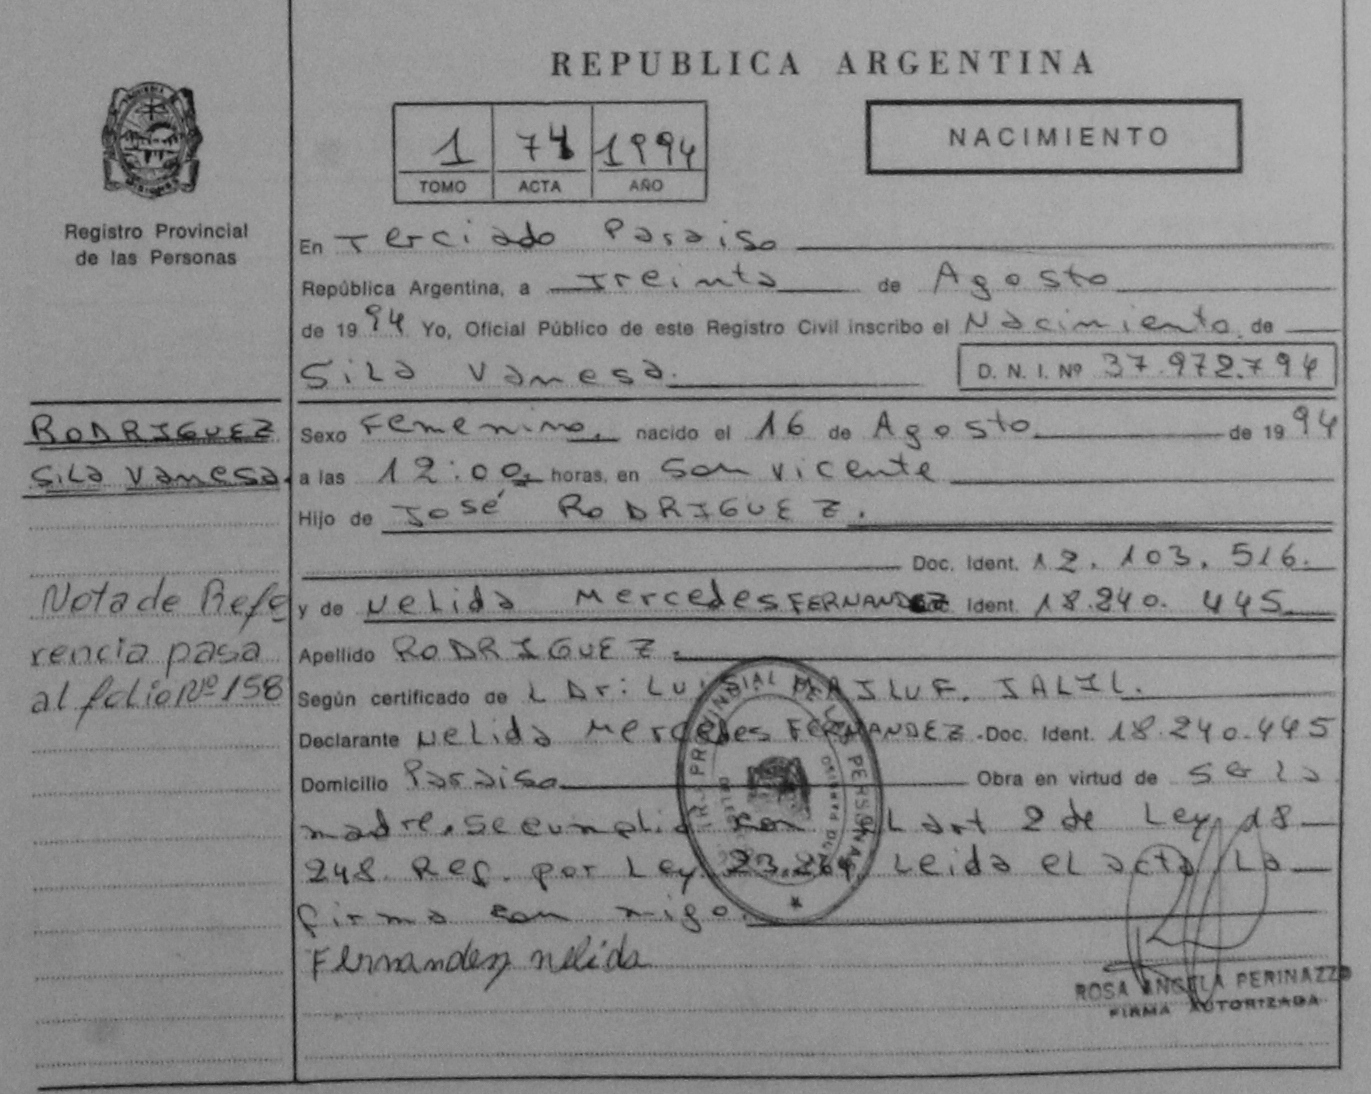 REPUBLICA ARGENTINA
1 74 1994
TOMO ACTA AÑO
NACIMIENTO
Registro Provincial
de las Personas
En Terciado Paraiso
República Argentina, a Treinta de Agosto
de 1994 Yo, Oficial Público de este Registro Civil inscribo el Nacimiento de
Sila Vanesa.
D. N. I. Nº 37.972.794
RODRIGUEZ
Sila Vanesa.
Sexo Femenino, nacido el 16 de Agosto de 1994
a las 12:00 horas, en San Vicente
Hijo de José RODRIGUEZ.
Doc. Ident. 12.103.516.
y de Nelida Mercedes FERNANDEZ Ident. 18.240.445
Apellido RODRIGUEZ.
Nota de Refe
rencia pasa
al folio Nº 158
Según certificado de L Dr: JALIL.
Declarante Nelida Mercedes FERNANDEZ. Doc. Ident. 18.240.445
Domicilio Paraiso Obra en virtud de ser la
madre, se cumplio con el art 2 de Ley 18
248. Ref. por Ley 23.264, Leida el acta La
firma con migo.
Fernandez nelida
ROSA ANGELA PERINAZZO
FIRMA AUTORIZADA